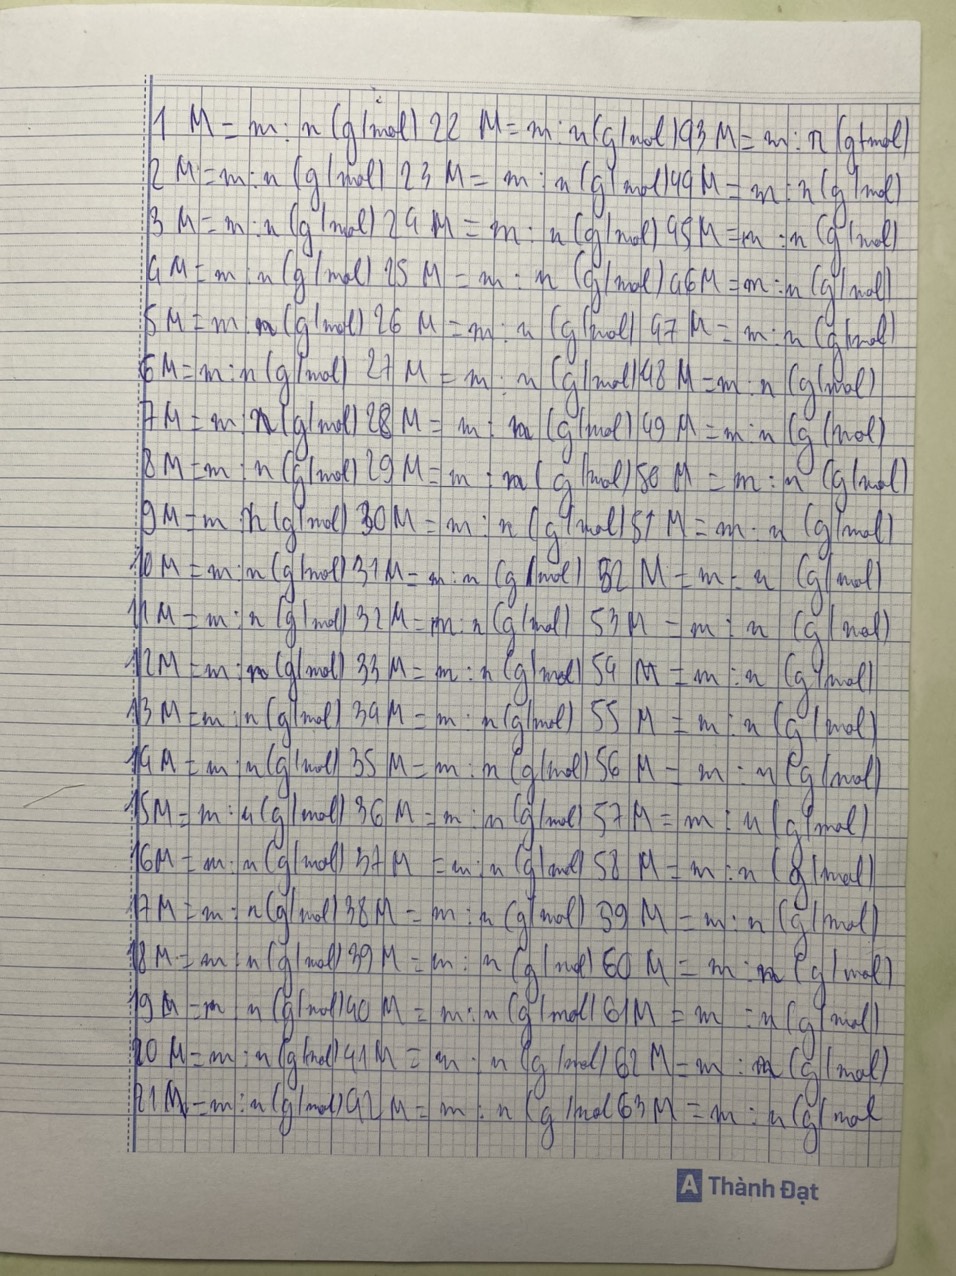 1 M = m : n (g/mol) 22 M = m : n (g/mol) 43 M = m : n (g/mol)
2 M = m : n (g/mol) 23 M = m : n (g/mol) 44 M = m : n (g/mol)
3 M = m : n (g/mol) 24 M = m : n (g/mol) 45 M = m : n (g/mol)
4 M = m : n (g/mol) 25 M = m : n (g/mol) 46 M = m : n (g/mol)
5 M = m : n (g/mol) 26 M = m : n (g/mol) 47 M = m : n (g/mol)
6 M = m : n (g/mol) 27 M = m : n (g/mol) 48 M = m : n (g/mol)
7 M = m : n (g/mol) 28 M = m : n (g/mol) 49 M = m : n (g/mol)
8 M = m : n (g/mol) 29 M = m : n (g/mol) 50 M = m : n (g/mol)
9 M = m : n (g/mol) 30 M = m : n (g/mol) 51 M = m : n (g/mol)
10 M = m : n (g/mol) 31 M = m : n (g/mol) 52 M = m : n (g/mol)
11 M = m : n (g/mol) 32 M = m : n (g/mol) 53 M = m : n (g/mol)
12 M = m : n (g/mol) 33 M = m : n (g/mol) 54 M = m : n (g/mol)
13 M = m : n (g/mol) 34 M = m : n (g/mol) 55 M = m : n (g/mol)
14 M = m : n (g/mol) 35 M = m : n (g/mol) 56 M = m : n (g/mol)
15 M = m : n (g/mol) 36 M = m : n (g/mol) 57 M = m : n (g/mol)
16 M = m : n (g/mol) 37 M = m : n (g/mol) 58 M = m : n (g/mol)
17 M = m : n (g/mol) 38 M = m : n (g/mol) 39 M = m : n (g/mol)
18 M = m : n (g/mol) 39 M = m : n (g/mol) 60 M = m : n (g/mol)
19 M = m : n (g/mol) 40 M = m : n (g/mol) 61 M = m : n (g/mol)
20 M = m : n (g/mol) 41 M = m : n (g/mol) 62 M = m : n (g/mol)
21 M = m : n (g/mol) 42 M = m : n (g/mol 63 M = m : n (g/mol
A Thành Đạt